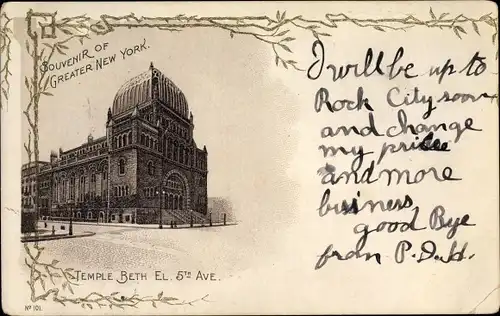 SOUVENIR OF
GREATER NEW YORK.
I will be up to
Rock City soon
and change
my
and more
buisness
good Bye
from P.D.H.
TEMPLE BETH EL. 5TH AVE.
No 101.